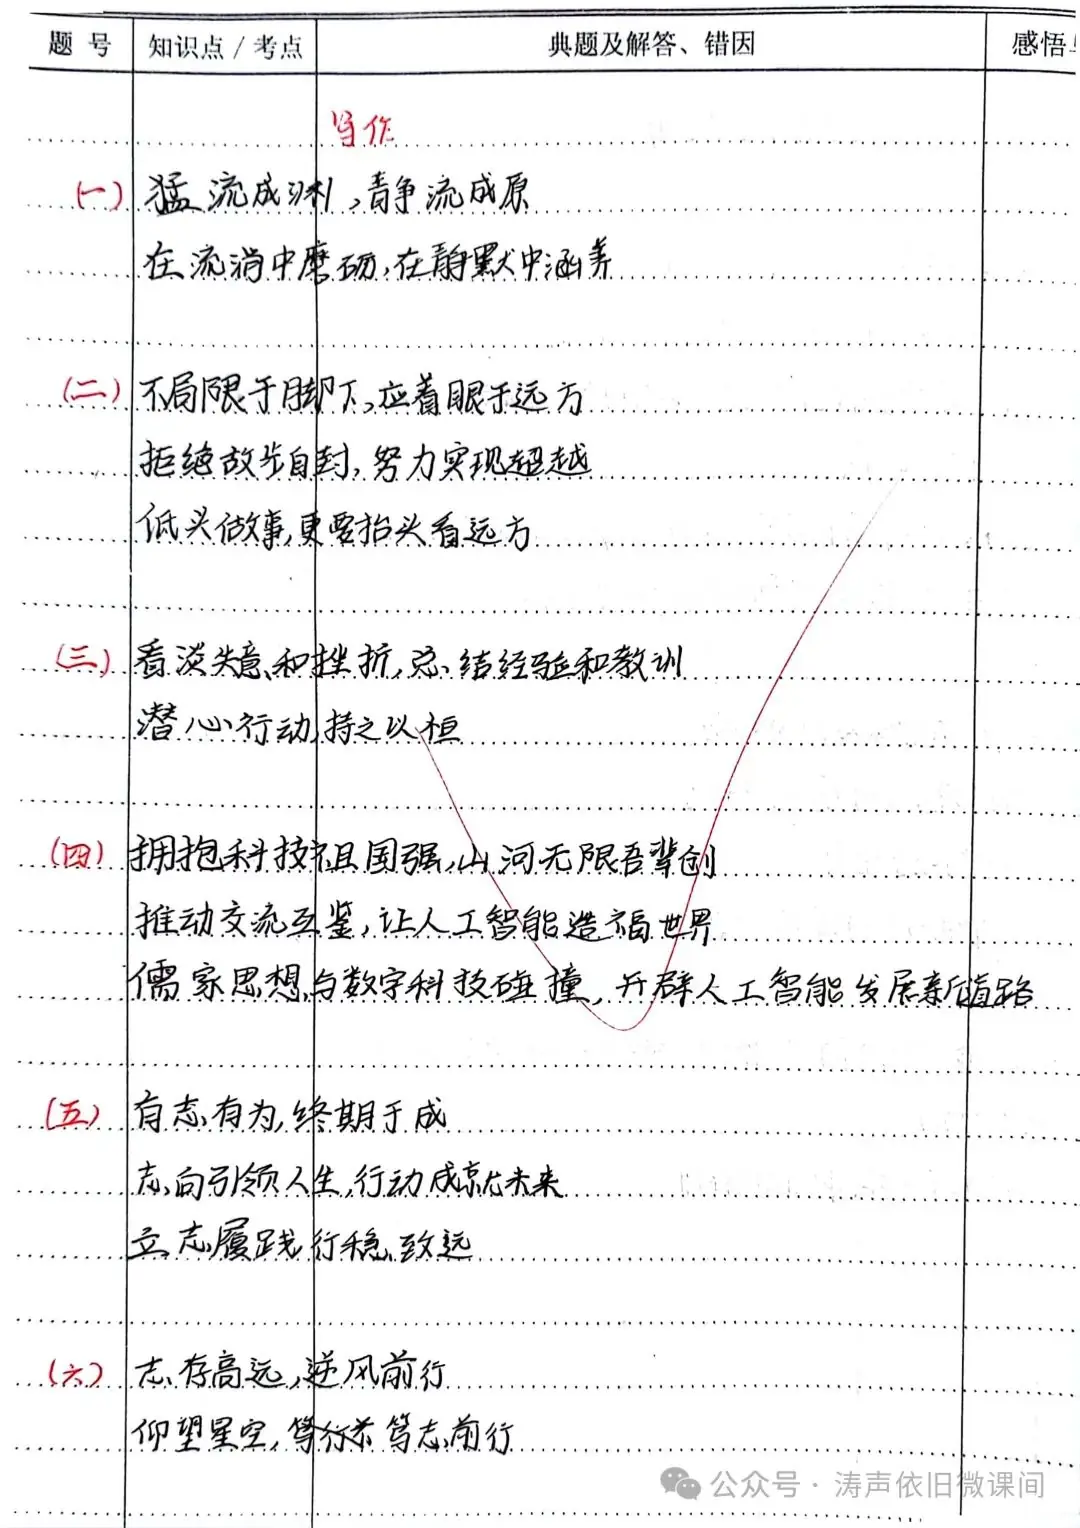 题 号 知识点/考点 典题及解答、错因 感悟
写作
(一) 猛流成渊,静流成原
在流淌中磨砺,在静默中涵养
(二) 不局限于脚下,应着眼于远方
拒绝故步自封,努力实现超越
低头做事,更要抬头看远方
(三) 看淡失意和挫折,总结经验和教训
潜心行动,持之以恒
(四) 拥抱科技祖国强,山河无限吾辈创
推动交流互鉴,让人工智能造福世界
儒家思想与数字科技碰撞,开辟人工智能发展新道路
(五) 有志有为,终期于成
志向引领人生,行动成就未来
立志履践行稳致远
(六) 志存高远,逆风前行
仰望星空,笃志前行
公众号·涛声依旧微课间